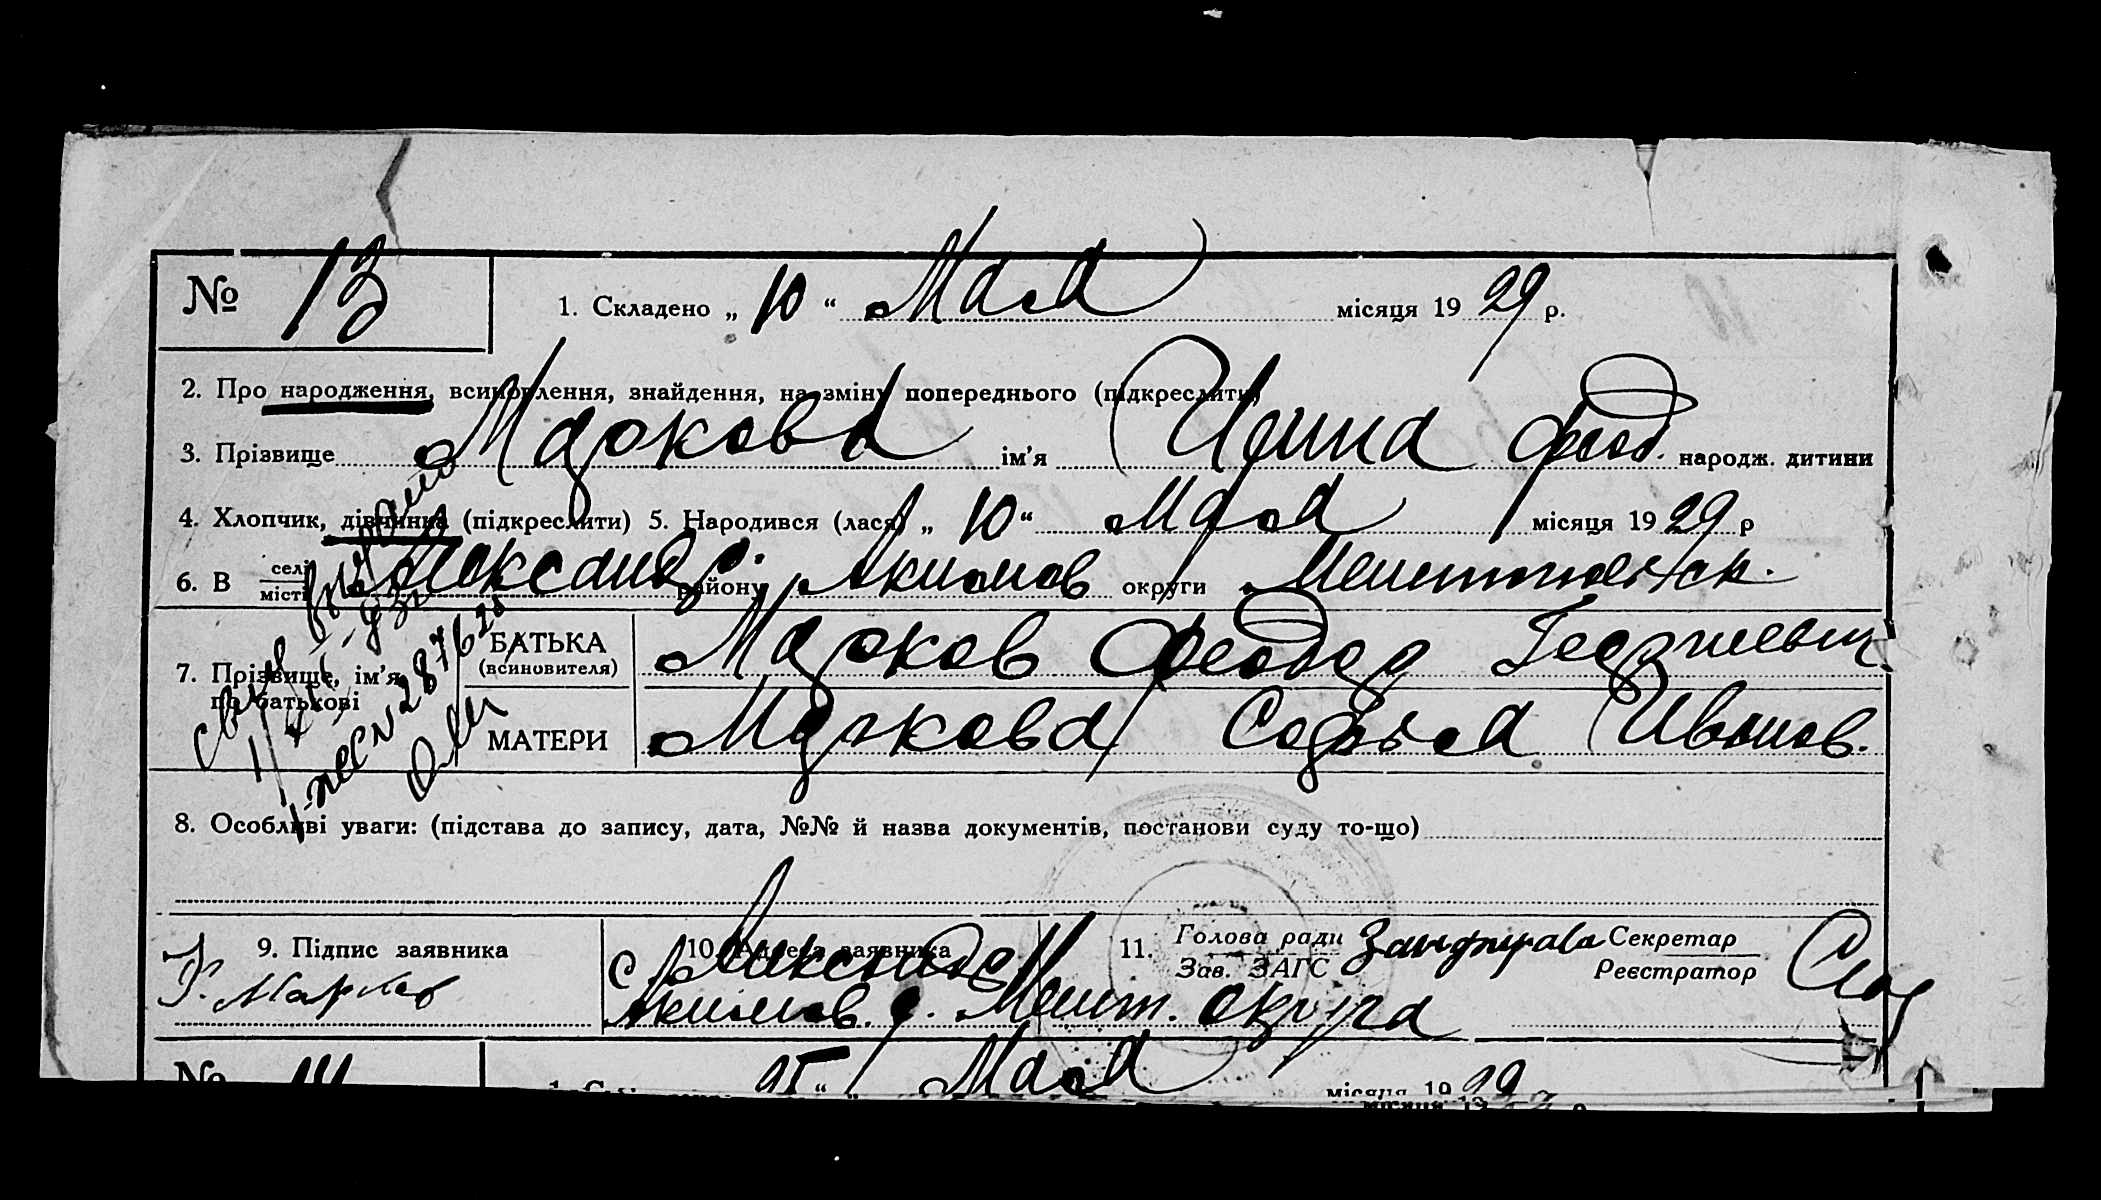 № 13
1. Складено „ 10 “ Мая місяця 19 29 р.
2. Про народження, всиновлення, знайдення, на зміну попереднього (підкреслити)
3. Прізвище Маркова ім’я Ирина Феод. народж. дитини
4. Хлопчик, дівчинка (підкреслити) 5. Народився (лася) „ 10 “ Мая місяця 19 29 р
6. В селі місті Александр. району Акимов округи Мелитопольск.
7. Прізвище, ім’я по батькові
БАТЬКА (всиновителя) Марков Феодор Георгиевич.
МАТЕРИ Маркова Софья Иванов.
8. Особливі уваги: (підстава до запису, дата, №№ й назва документів, постанови суду то-що)
9. Підпис заявника
Ф. Марков
10. Адреса заявника
с Александр
Акимов. р. Мелит. округа
11. Голова ради Зав. ЗАГС Секретар Реєстратор
№ 14 1. 25 “ Мая місяця 19 29